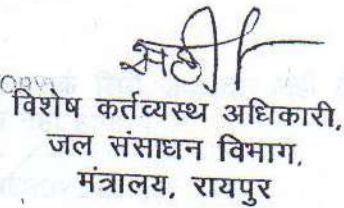 सही
विशेष कर्तव्यस्थ अधिकारी,
जल संसाधन विभाग,
मंत्रालय, रायपुर